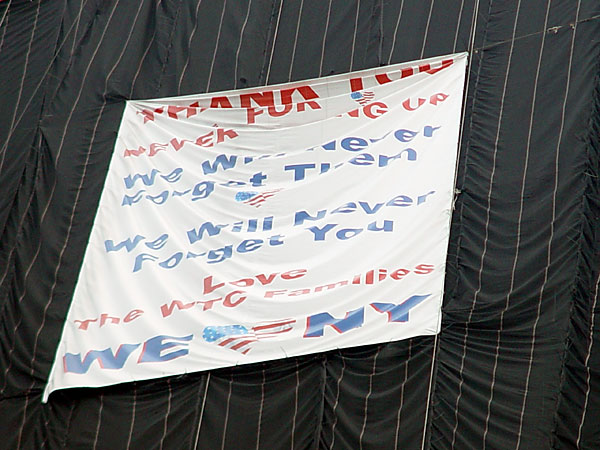 THANK YOU
FOR
NEVER UP
We Will Never
Forget Them
We Will Never
Forget You
Love
The WTC Families
WE NY